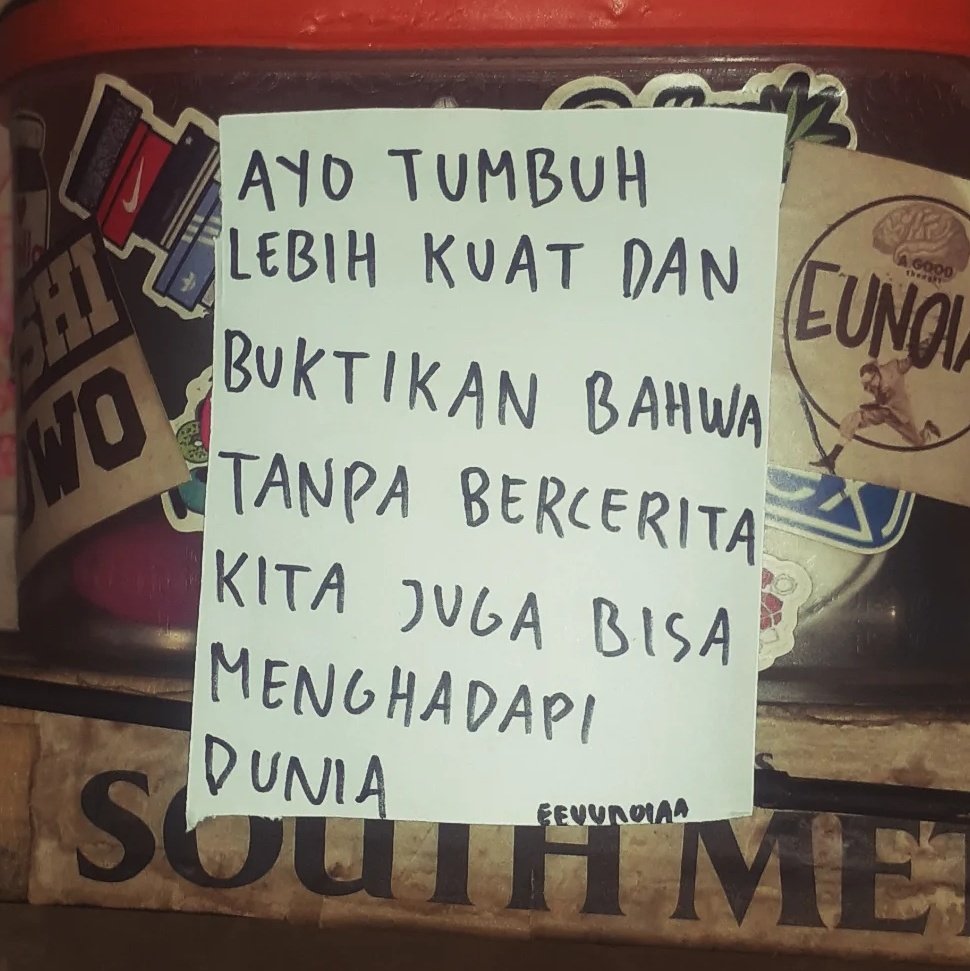 AYO TUMBUH
LEBIH KUAT DAN
BUKTIKAN BAHWA
TANPA BERCERITA
KITA JUGA BISA
MENGHADAPI
DUNIA
EEUUNOIAA
A GOOD
thought
EUNOIA
SOUTH MET